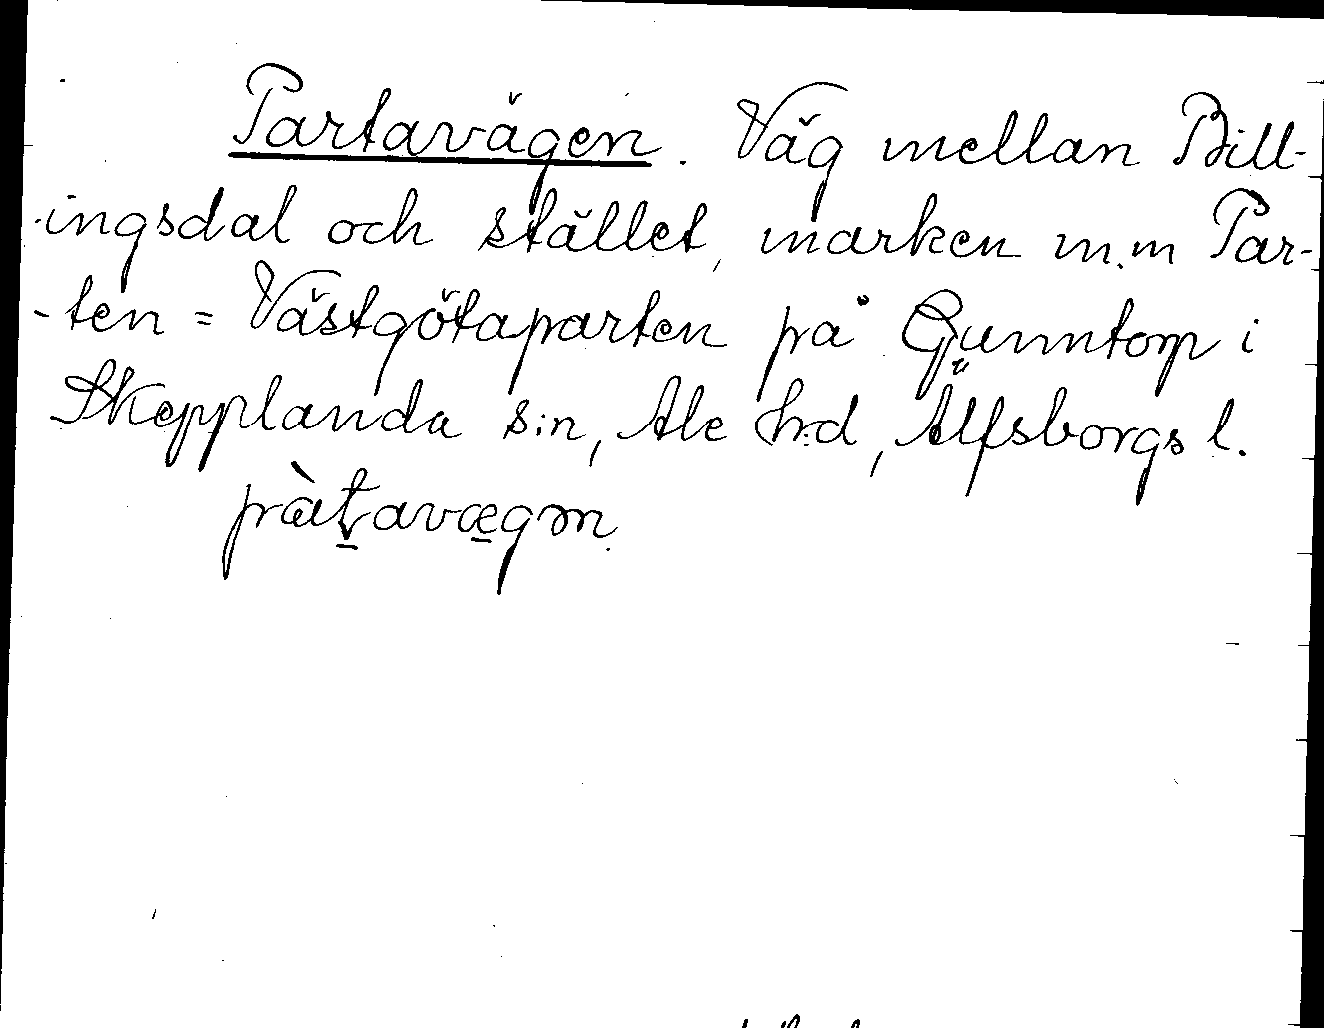 Partavägen. Väg mellan Bill-
-ingsdal och stället, marken m.m Par-
-ten = Västgötaparten på Gunntorp i
Skepplanda s:n, Ale h:d, Älfsborgs l.
pàʈavægən.